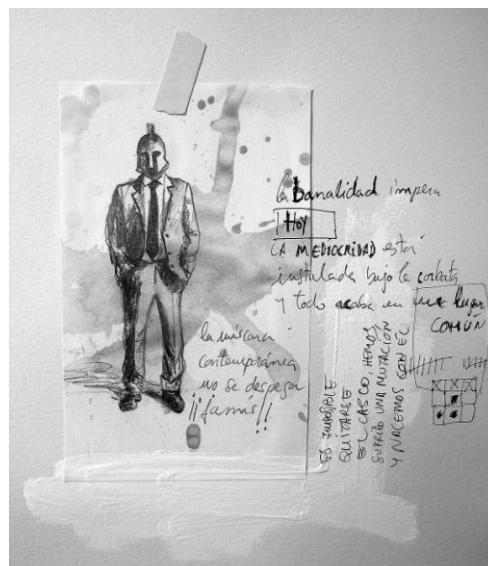 la banalidad impera
HOY
LA MEDIOCRIDAD está
instalada bajo la corbata
y todo acaba en un lugar
COMÚN
la máscara
contemporánea
no se despega
¡¡jamás!!
ES IMPOSIBLE
QUITARSE
EL CASCO, HEMOS
SUFRIDO UNA MUTACIÓN
Y NACEMOS CON EL